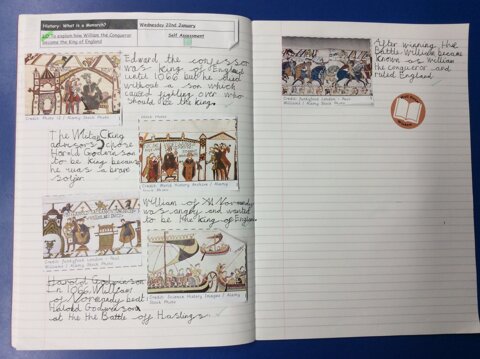 History: What is a Monarch?
Wednesday 22nd January
LO: To explain how William the Conqueror
become the King of England
Self Assessment
Edward the confessor
was King of England
until 1066 but he died
without a son which
caused fighting over who
should be the king.
Credit: Photo 12 / Alamy Stock Photo
Stock Photo
The Witan King
advisors chose
Harold Godwinson
to be king because
he was a brave
Credit: World History Archive / Alamy
Stock Photo
William of Normandy
was angry and wanted
to be the king of England
Credit: Funkyfood London - Paul
Williams / Alamy Stock Photo
Credit: Science History Images / Alamy
Stock Photo
Harold Godwinson
In 1066 William
of Normandy beat
Harold Godwinson
at the the Battle of Hastings
Credit: Funkyfood London - Paul
Williams / Alamy Stock Photo
After winning that
Battle William became
known as William
the conqueror and
ruled England